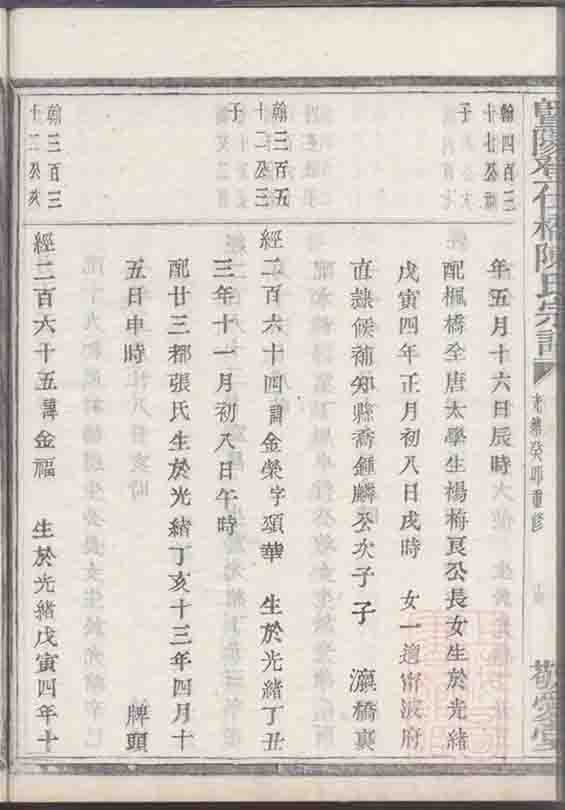 暨陽仕橋陳氏宗譜
光緒癸卯重修
敬愛堂
翰四百三
十七公
子
年五月十六日辰時
配楓橋全唐太學生楊梅良公長女生於光緒
戊寅四年正月初八日戌時　女一適甯波府
直隸候補知縣喬鍾麟公次子子　瀛橋裏
翰三百五
十二公三
子
經二百六十四諱金榮字頌華　生於光緒丁丑
三年十一月初八日午時
配廿三都張氏生於光緒丁亥十三年四月十
五日申時　牌頭
翰三百三
十二公次
經二百六十五諱金福　生於光緒戊寅四年十